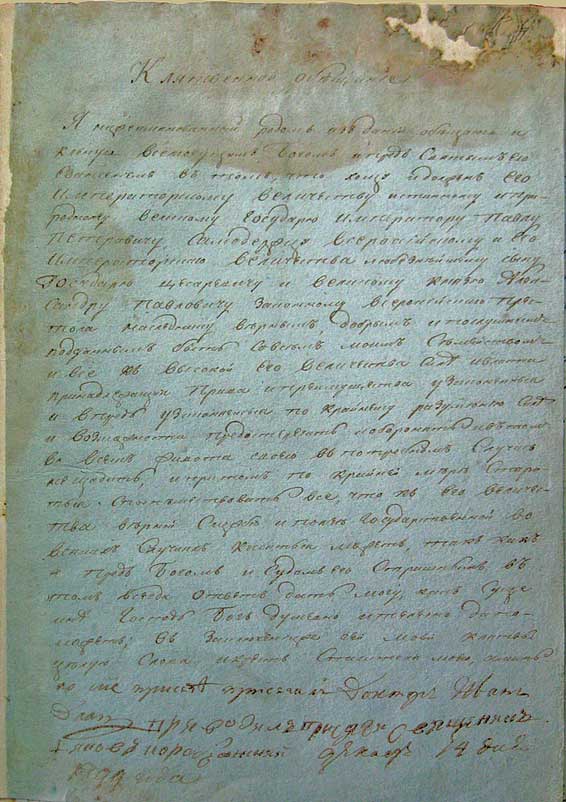 Клятвенное обѣщание
Я нижеименованный родомъ изъ дацкъ обѣщаюсь и
клянусь всемогущимъ Богомъ и предъ Святымъ его
евангелиемъ въ томъ, что хощу и долженъ его
Императорскому величеству истинному и при-
родному великому государю Императору Павлу
Петровичу Самодержцу Всероссийскому и его
Императорскаго величества любезнѣйшему сыну
Государю цесаревичу и великому князю Алек-
сандру Павловичу законному Всероссийскаго Прес-
тола наслѣднику вѣрнымъ, добрымъ и послушнымъ
подданнымъ быть Совсемъ моимъ Семействомъ
и всѣ къ высокой его величества
принадлежащия Права и преимущества узаконенныя
и впредь узаконяемыя по крайнему разумению Силѣ
и возможности предостерегать и оборонять и въ томъ
во всемъ живота своего въ потребномъ Случаѣ
не щадить, и притомъ по крайней мѣрѣ Стара-
ться Споспешествовать все, что къ его величес-
тва вѣрной Службѣ и пользѣ Государственной во
всякихъ Случаяхъ касаться можетъ, такъ какъ
я предъ Богомъ и Судомъ его Страшнымъ въ
томъ всегда ответъ дать могу, какъ Суще
мнѣ Господь Богъ душевно и телесно да по-
можетъ; въ Заключение сей моей клятвы
целую Слова и крестъ Спасителя моего, аминь
присягѣ присягалъ Докторъ Иванъ
приводилъ къ присягѣ Священникъ
14 дня
года